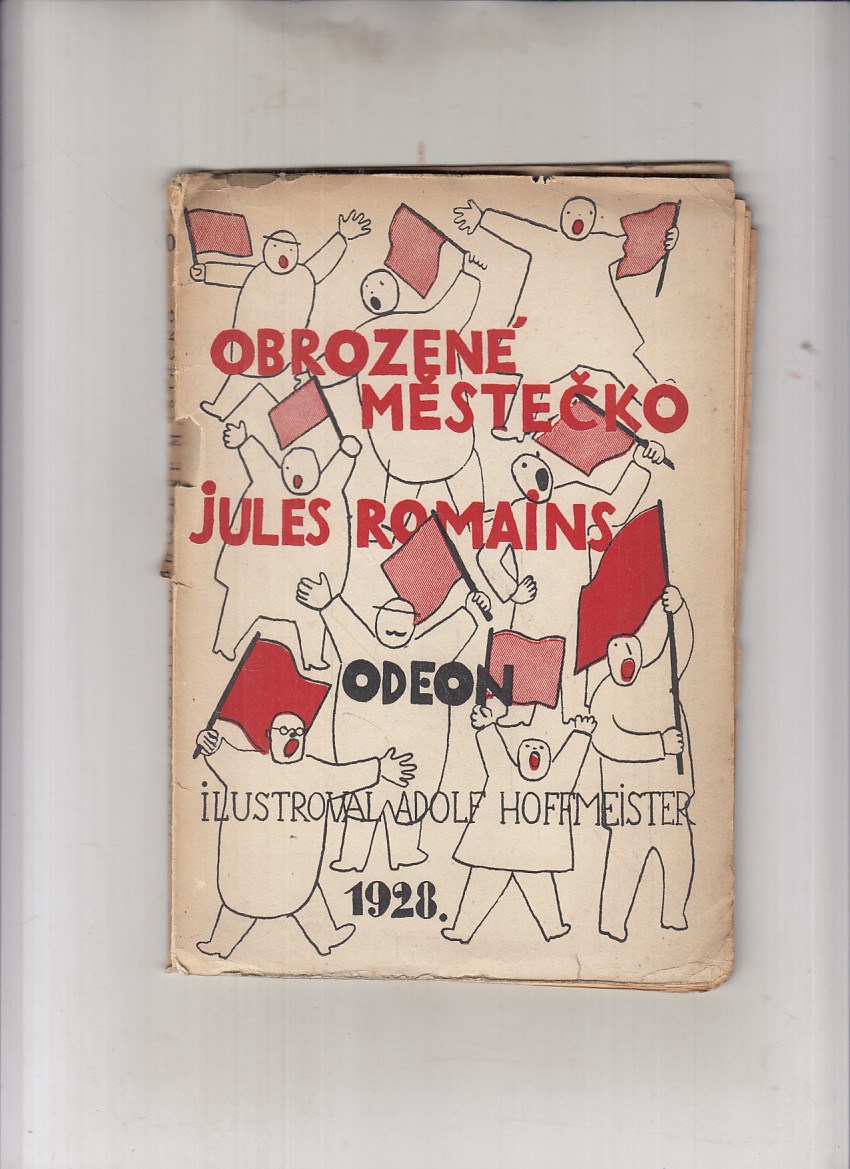 OBROZENÉ
MĚSTEČKO
JULES ROMAINS
ODEON
ILUSTROVAL ADOLF HOFFMEISTER
1928.